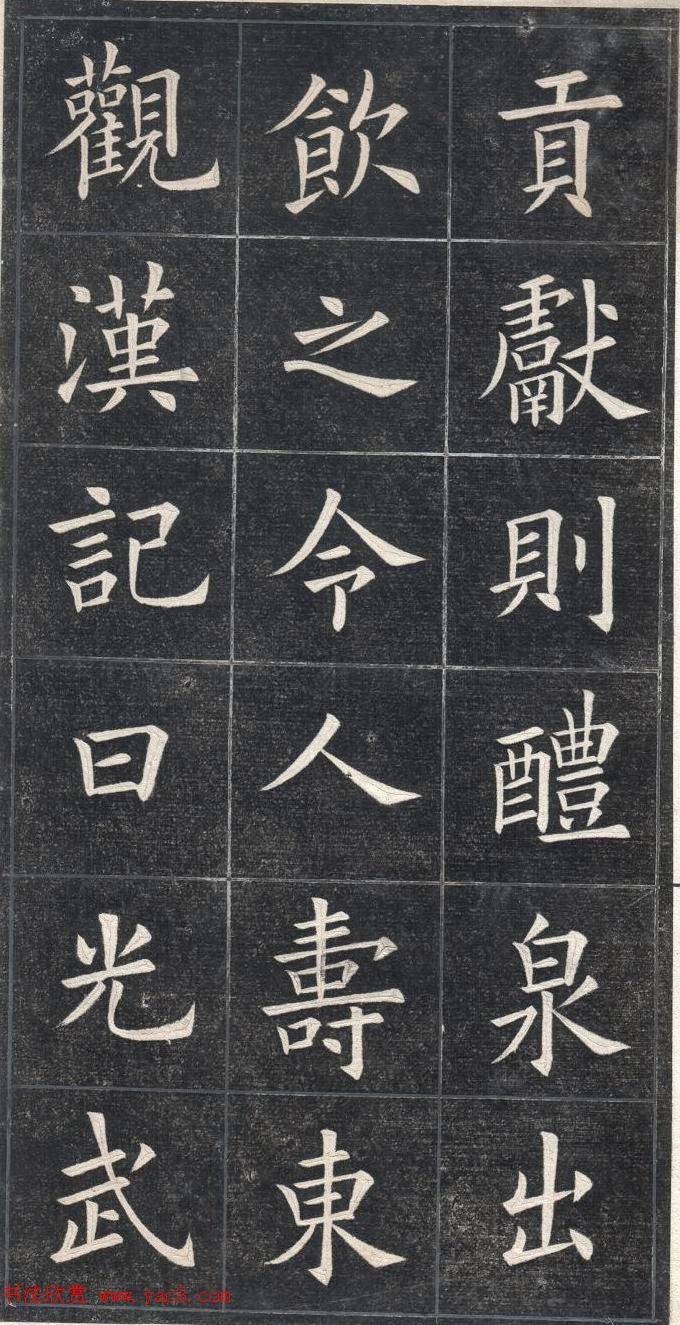 貢獻則醴泉出
飲之令人壽東
觀漢記曰光武
书法欣赏 www.yac8.com